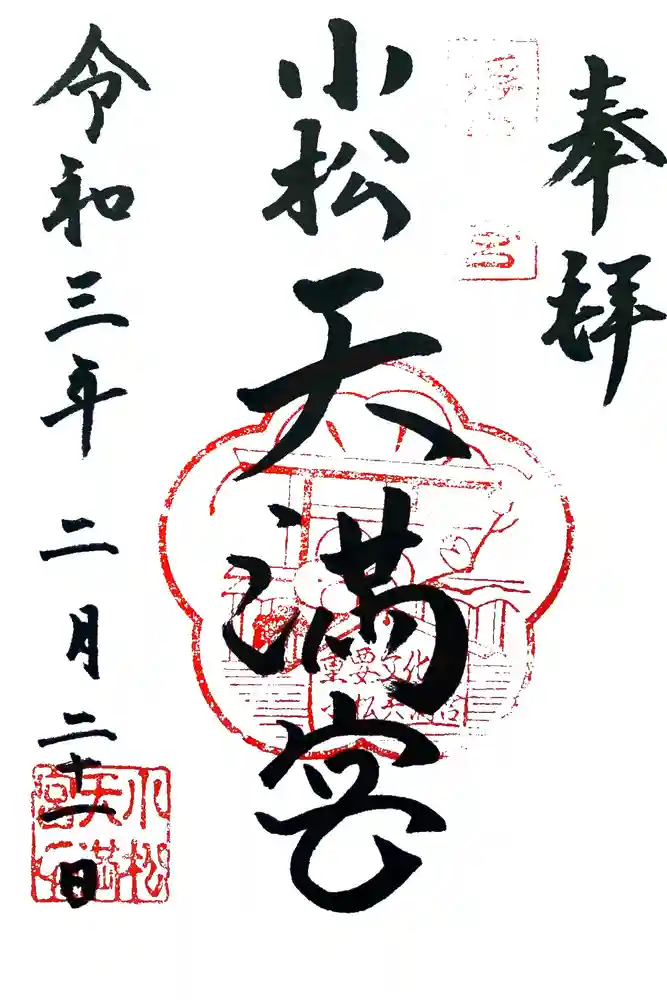 奉拝
小松天満宮
重要文化
小松天満宮
令和三年 二月 二十一日
小松
天満
宮